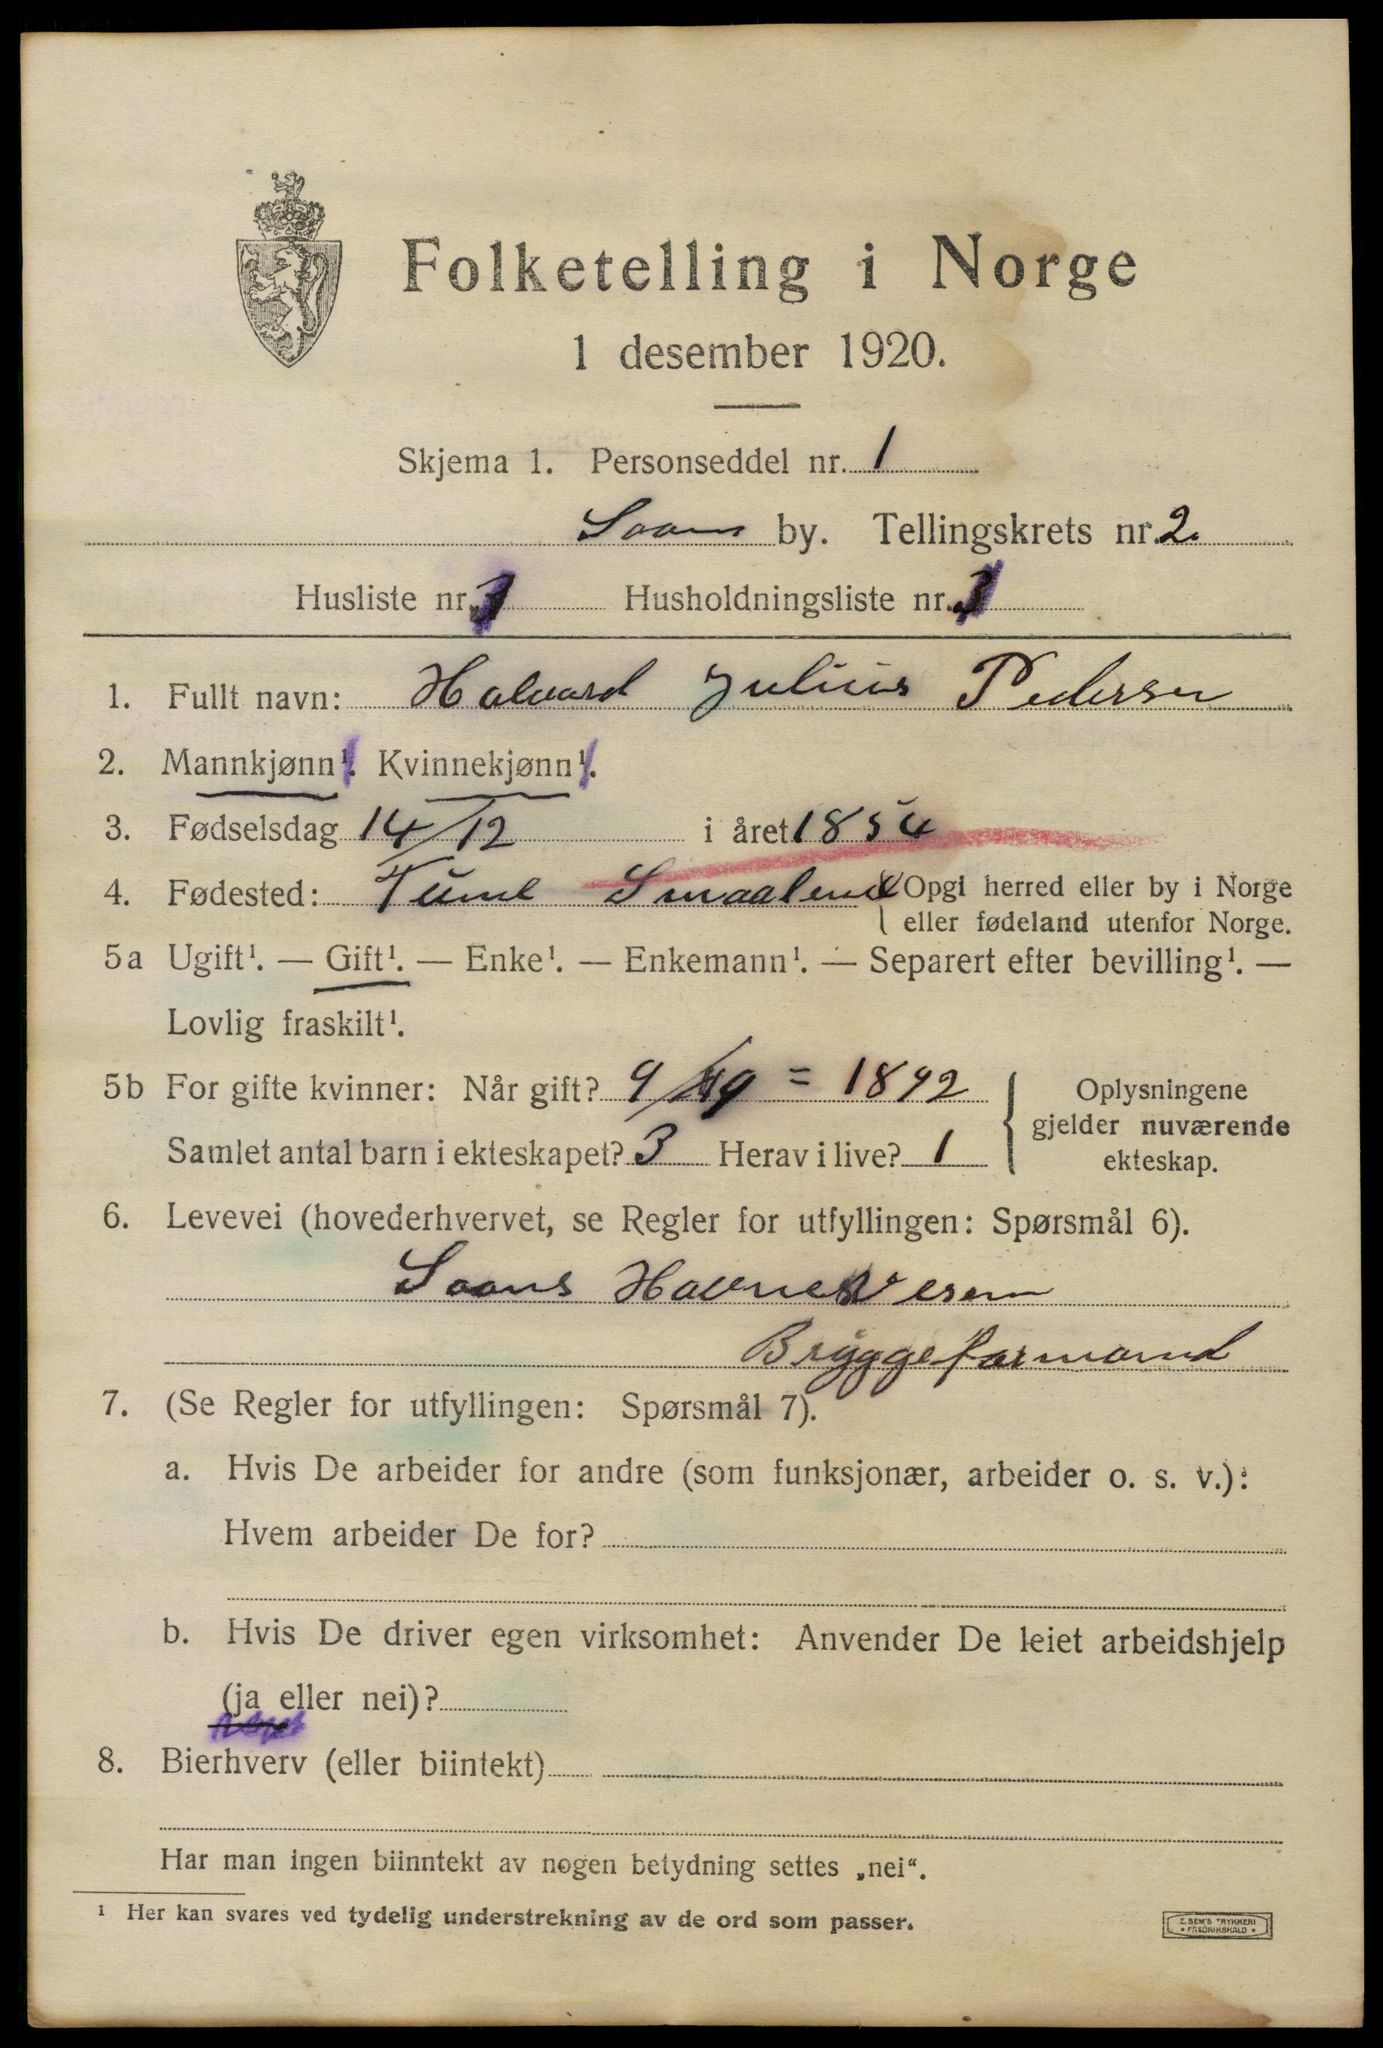 Folketelling i Norge
1 desember 1920.
Skjema 1. Personseddel nr. 1
Soon by. Tellingskrets nr. 2.
Husliste nr. Husholdningsliste nr.
1. Fullt navn: Halvard Julius Pedersen
2. Mannkjønn¹. Kvinnekjønn¹.
3. Fødselsdag 14/12 i året 1854
4. Fødested: Tune Smaalene { Opgi herred eller by i Norge
eller fødeland utenfor Norge.
5a Ugift¹. — Gift¹. — Enke¹. — Enkemann¹. — Separert efter bevilling¹. —
Lovlig fraskilt¹.
5b For gifte kvinner: Når gift? 9/ = 1892
Samlet antal barn i ekteskapet? 3 Herav i live? 1
Oplysningene
gjelder nuværende
ekteskap.
6. Levevei (hovederhvervet, se Regler for utfyllingen: Spørsmål 6).
Soons Havnevesen
Bryggeformand
7. (Se Regler for utfyllingen: Spørsmål 7).
a. Hvis De arbeider for andre (som funksjonær, arbeider o. s. v.):
Hvem arbeider De for?
b. Hvis De driver egen virksomhet: Anvender De leiet arbeidshjelp
(ja eller nei)?
8. Bierhverv (eller biintekt)
Har man ingen biinntekt av nogen betydning settes „nei“.
¹ Her kan svares ved tydelig understrekning av de ord som passer.
E. SEM'S TRYKKERI
• FREDRIKSHALD •